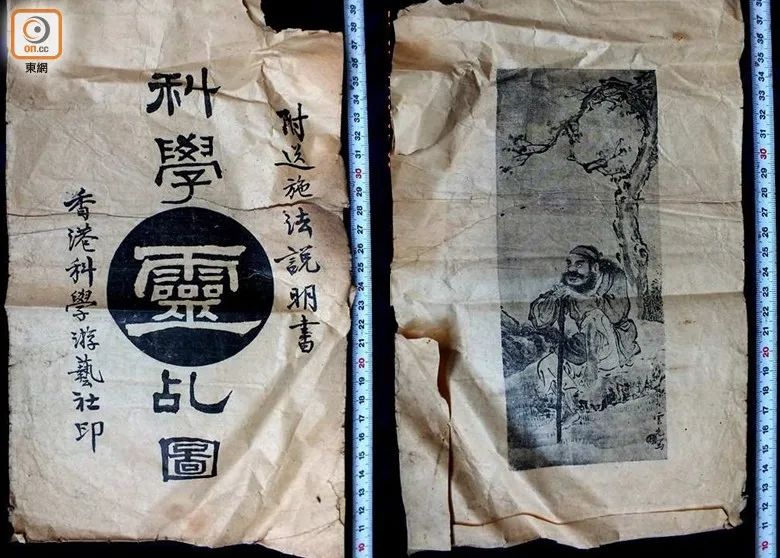 on.cc
東網
附送施法說明書
科學靈乩圖
香港科學游藝社印